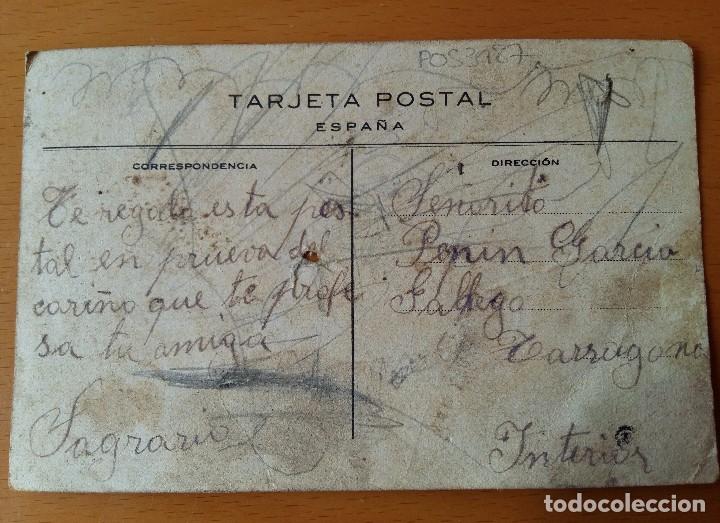 POS3187
TARJETA POSTAL
ESPAÑA
CORRESPONDENCIA
Te regalo esta pos
tal en prueva del
cariño que te profe
sa tu amiga
Sagrario
DIRECCIÓN
Señorita
Penin Garcia
Gallego
Tarragona
Interior
todocoleccion.net